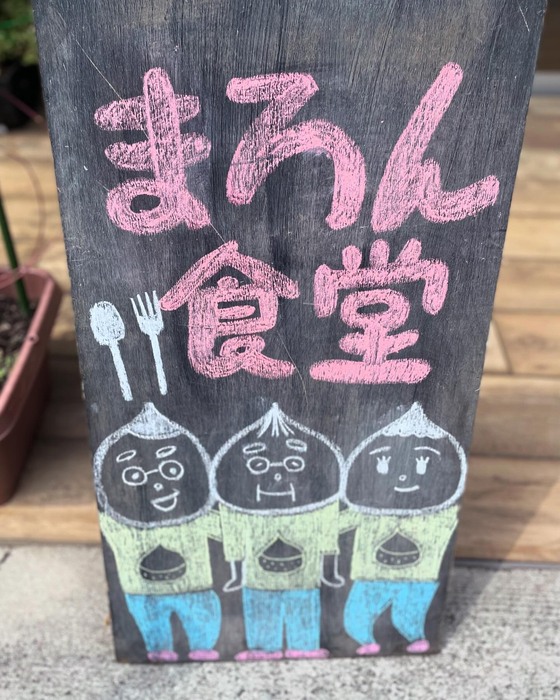 まろん
食堂